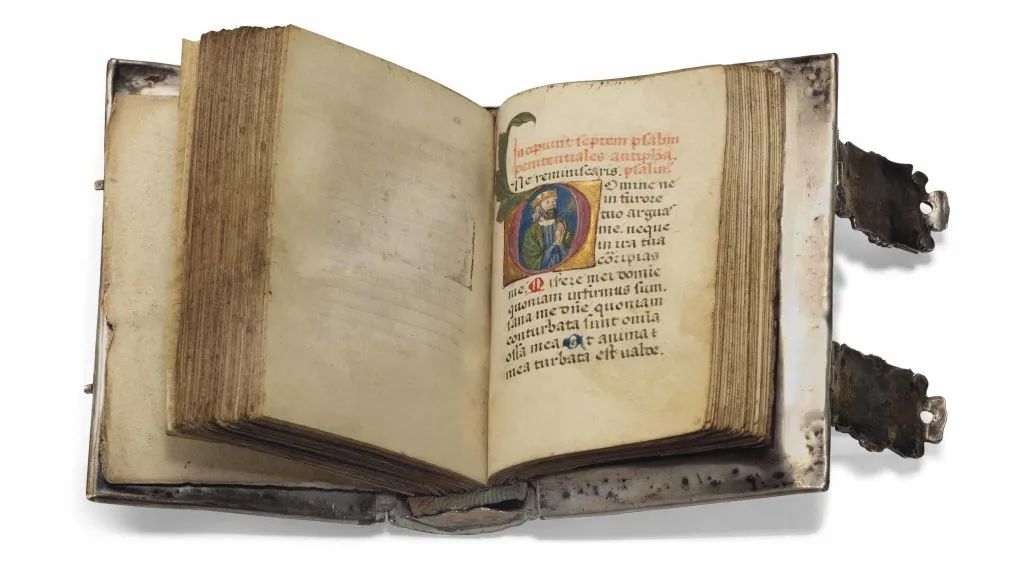 Incipiunt septem psalmi
penitentiales antipha.
Ne reminiscaris. psalmꝰ
Omine ne
in furore
tuo arguaˢ
me. neque
in ira tua
corripias
me. Misere mei domie
quoniam infirmus sum.
sana me dn̄e quoniam
conturbata sunt om̄ia
ossa mea Et anima t
mea turbata est valde.